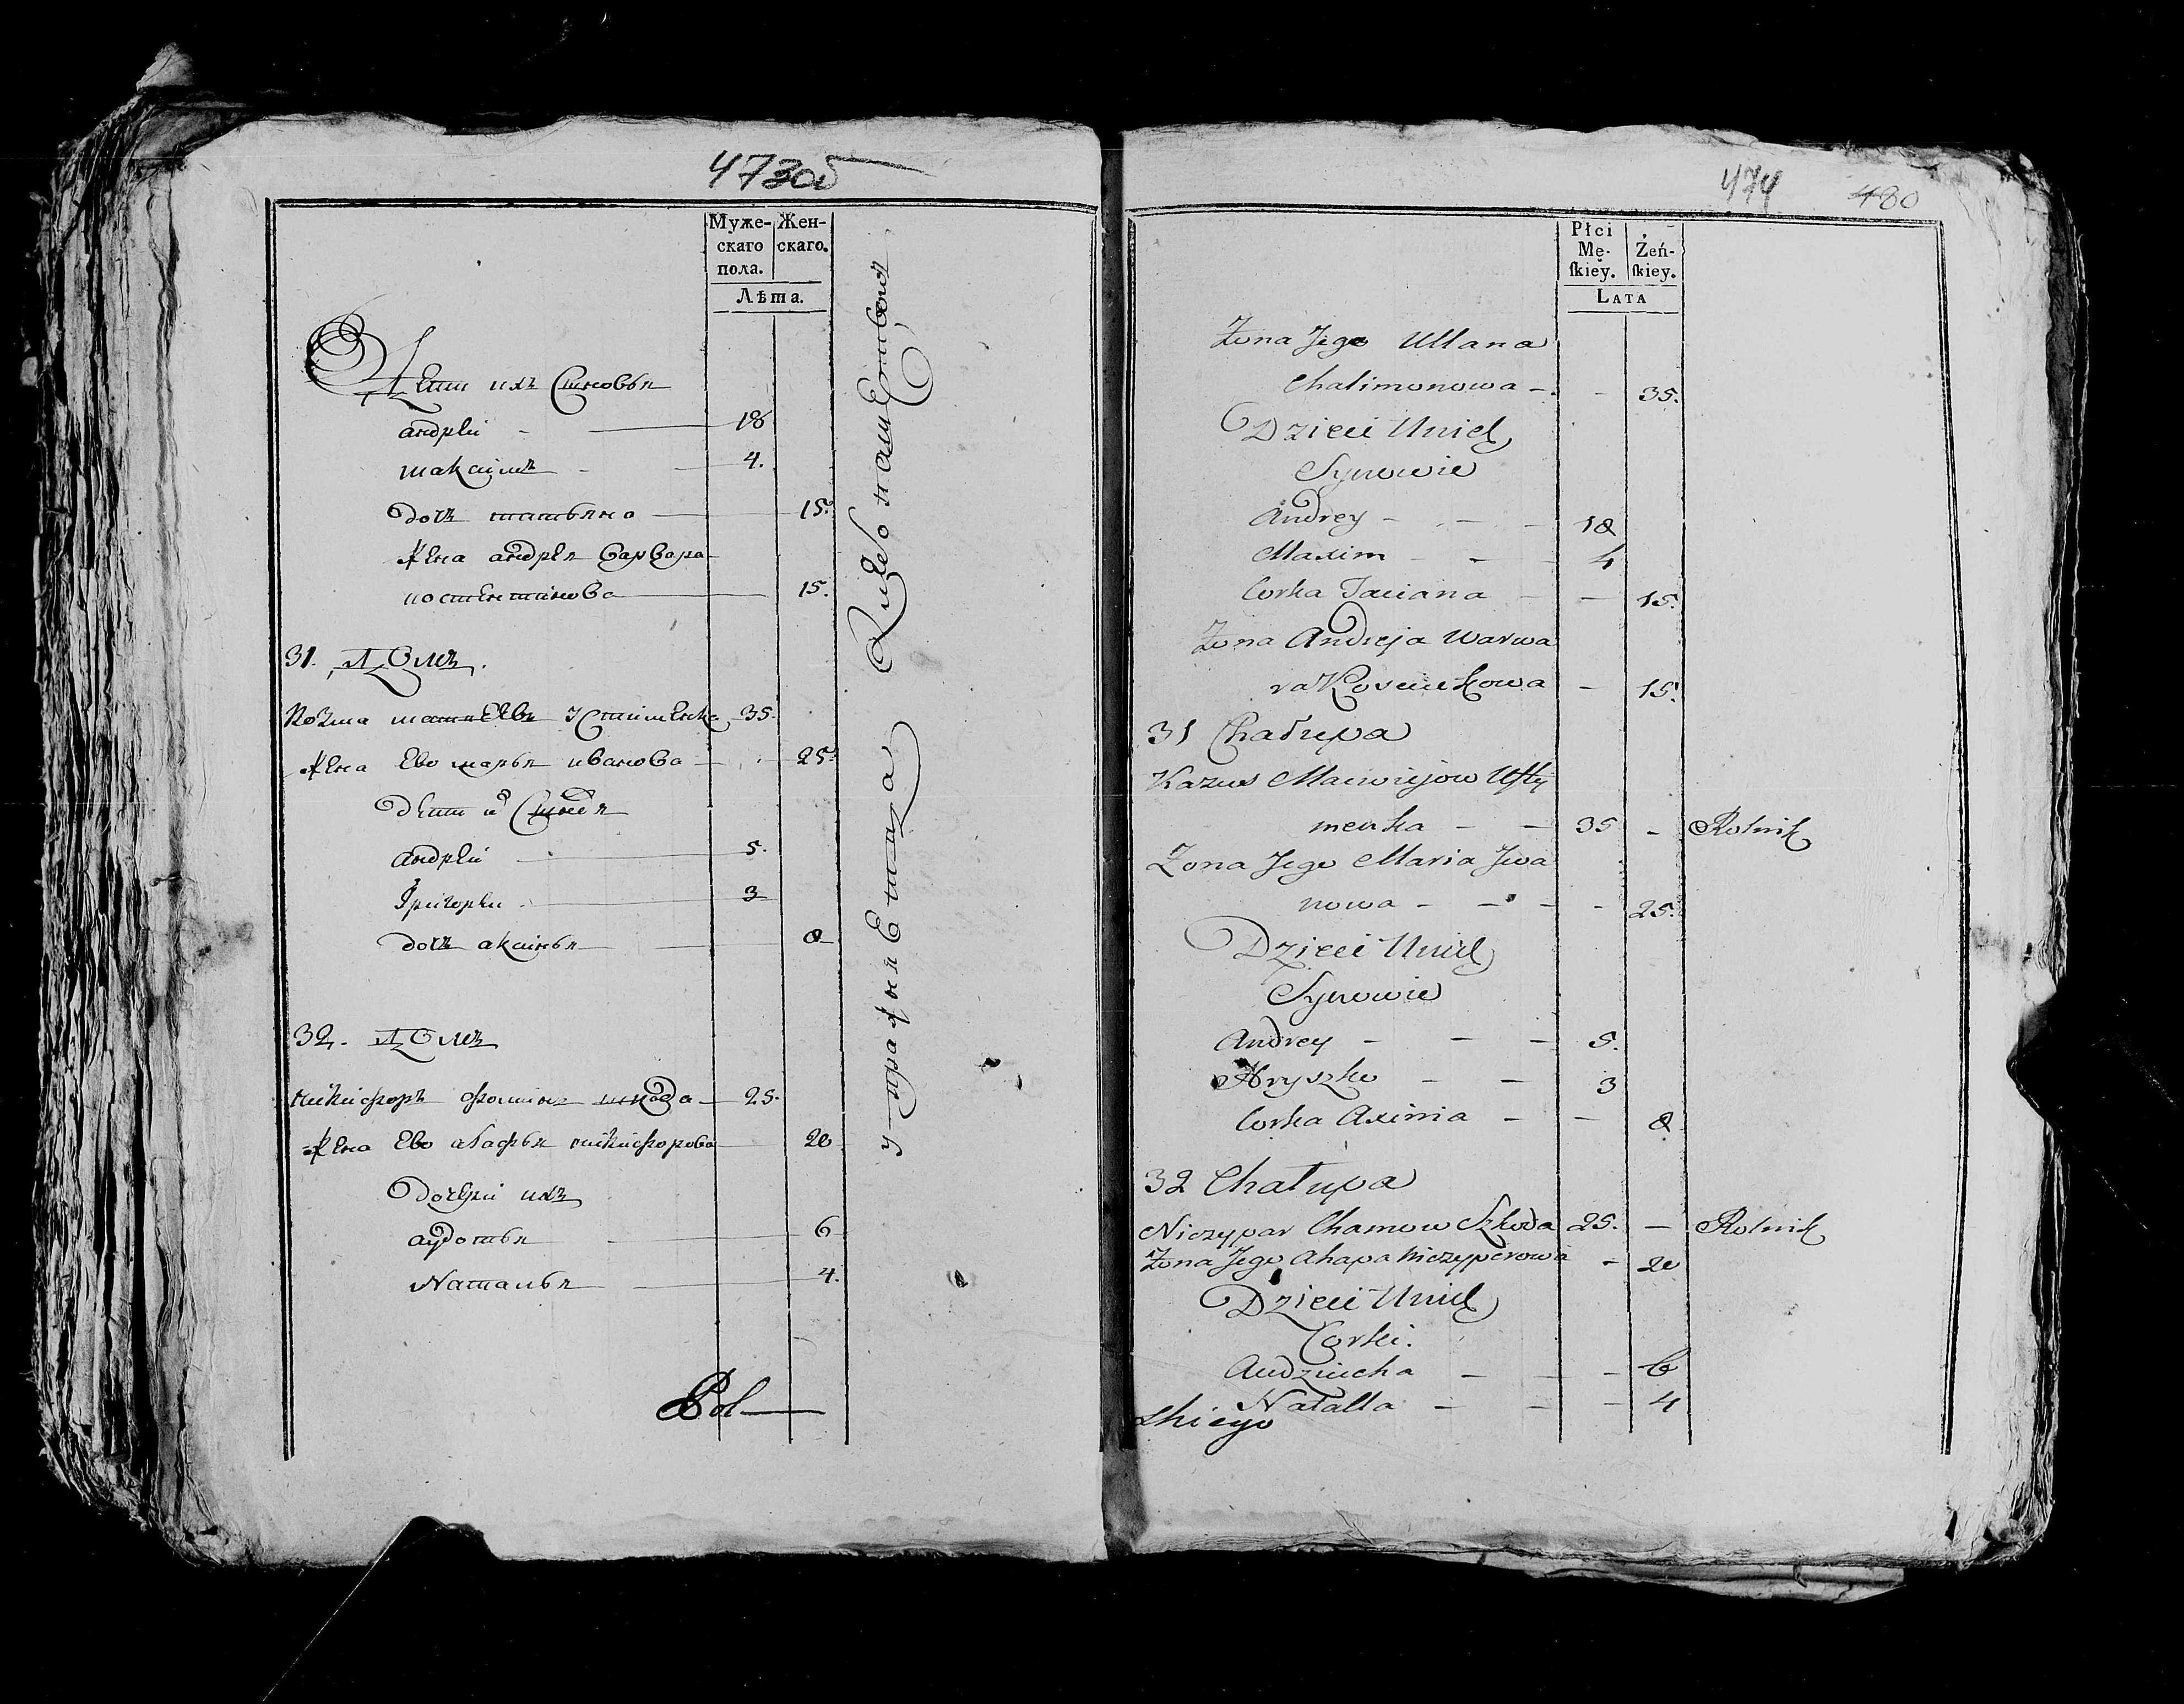 473об
Муже-
скаго
пола.
Жен-
скаго.
Лѣта.
Дети ихъ Сыновья
андрей - 18
максимъ - 4.
дочь татьяна 15.
Жена андрея варвара
костентинова 15.
31. Домъ.
Козма матвеевъ устименка 35.
Жена Ево марья иванова 25.
дети их Сыновья
андрей 5.
Григореи 3
дочь аксинья 8
32. Домъ
никифоръ фоминъ шкода 25.
Жена Ево агафья никифорова 20
Дочери ихъ
аудотья 6
Наталья 4.
упражняетца
Pol
474 480
Płci
Mę-
ſkiey.
Żeń-
ſkiey.
LATA
Żona Jego Ullana
Chalimonowa - - 35.
Dzieci Unich
Synowie
Andrey - - - 18
Maxim - - - 4
Corka Taciana - - 15.
Żona Andreja Warwa
ra Kosciukowa - 15.
31 Chałupa
Kazus Maciviejow Uſty
menka - - 35 - Rolnik
Żona Jego Maria Jwa
nowa - - - - 25.
Dzieci Unich
Synowie
Andrey - - - 5.
Hryszko - - 3
Corka Axinia - - 8
32 Chałupa
Niczypar Chamow Szkoda 25. - Rolnik
Żona Jego Ahapa Niczyperowa - 20
Dzieci Unich
Corki.
Audziucha - - - 6
Natalla - - - 4
skiego